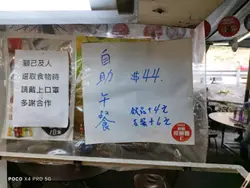 顧己及人
選取食物時
請戴上口罩
多謝合作
自助午餐
$44.
飲品+4元
POCO X4 PRO 5G